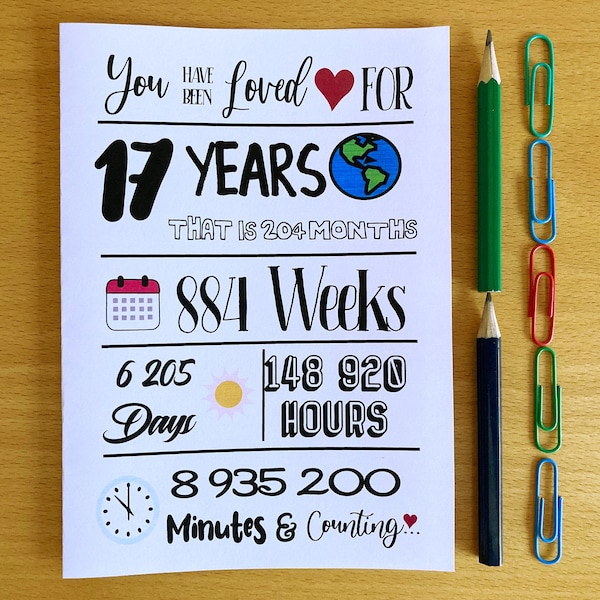 You HAVE BEEN Loved FOR
17 YEARS
THAT IS 204 MONTHS
884 Weeks
6 205
Days
148 920
HOURS
8 935 200
Minutes & Counting...